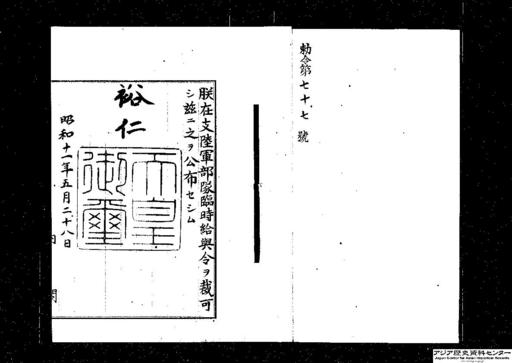 勅令第七十七號
朕在支陸軍部隊臨時給與令ヲ裁可
シ茲ニ之ヲ公布セシム
裕仁
天皇御璽
昭和十一年五月二十八日
アジア歴史資料センター
Japan Center for Asian Historical Records